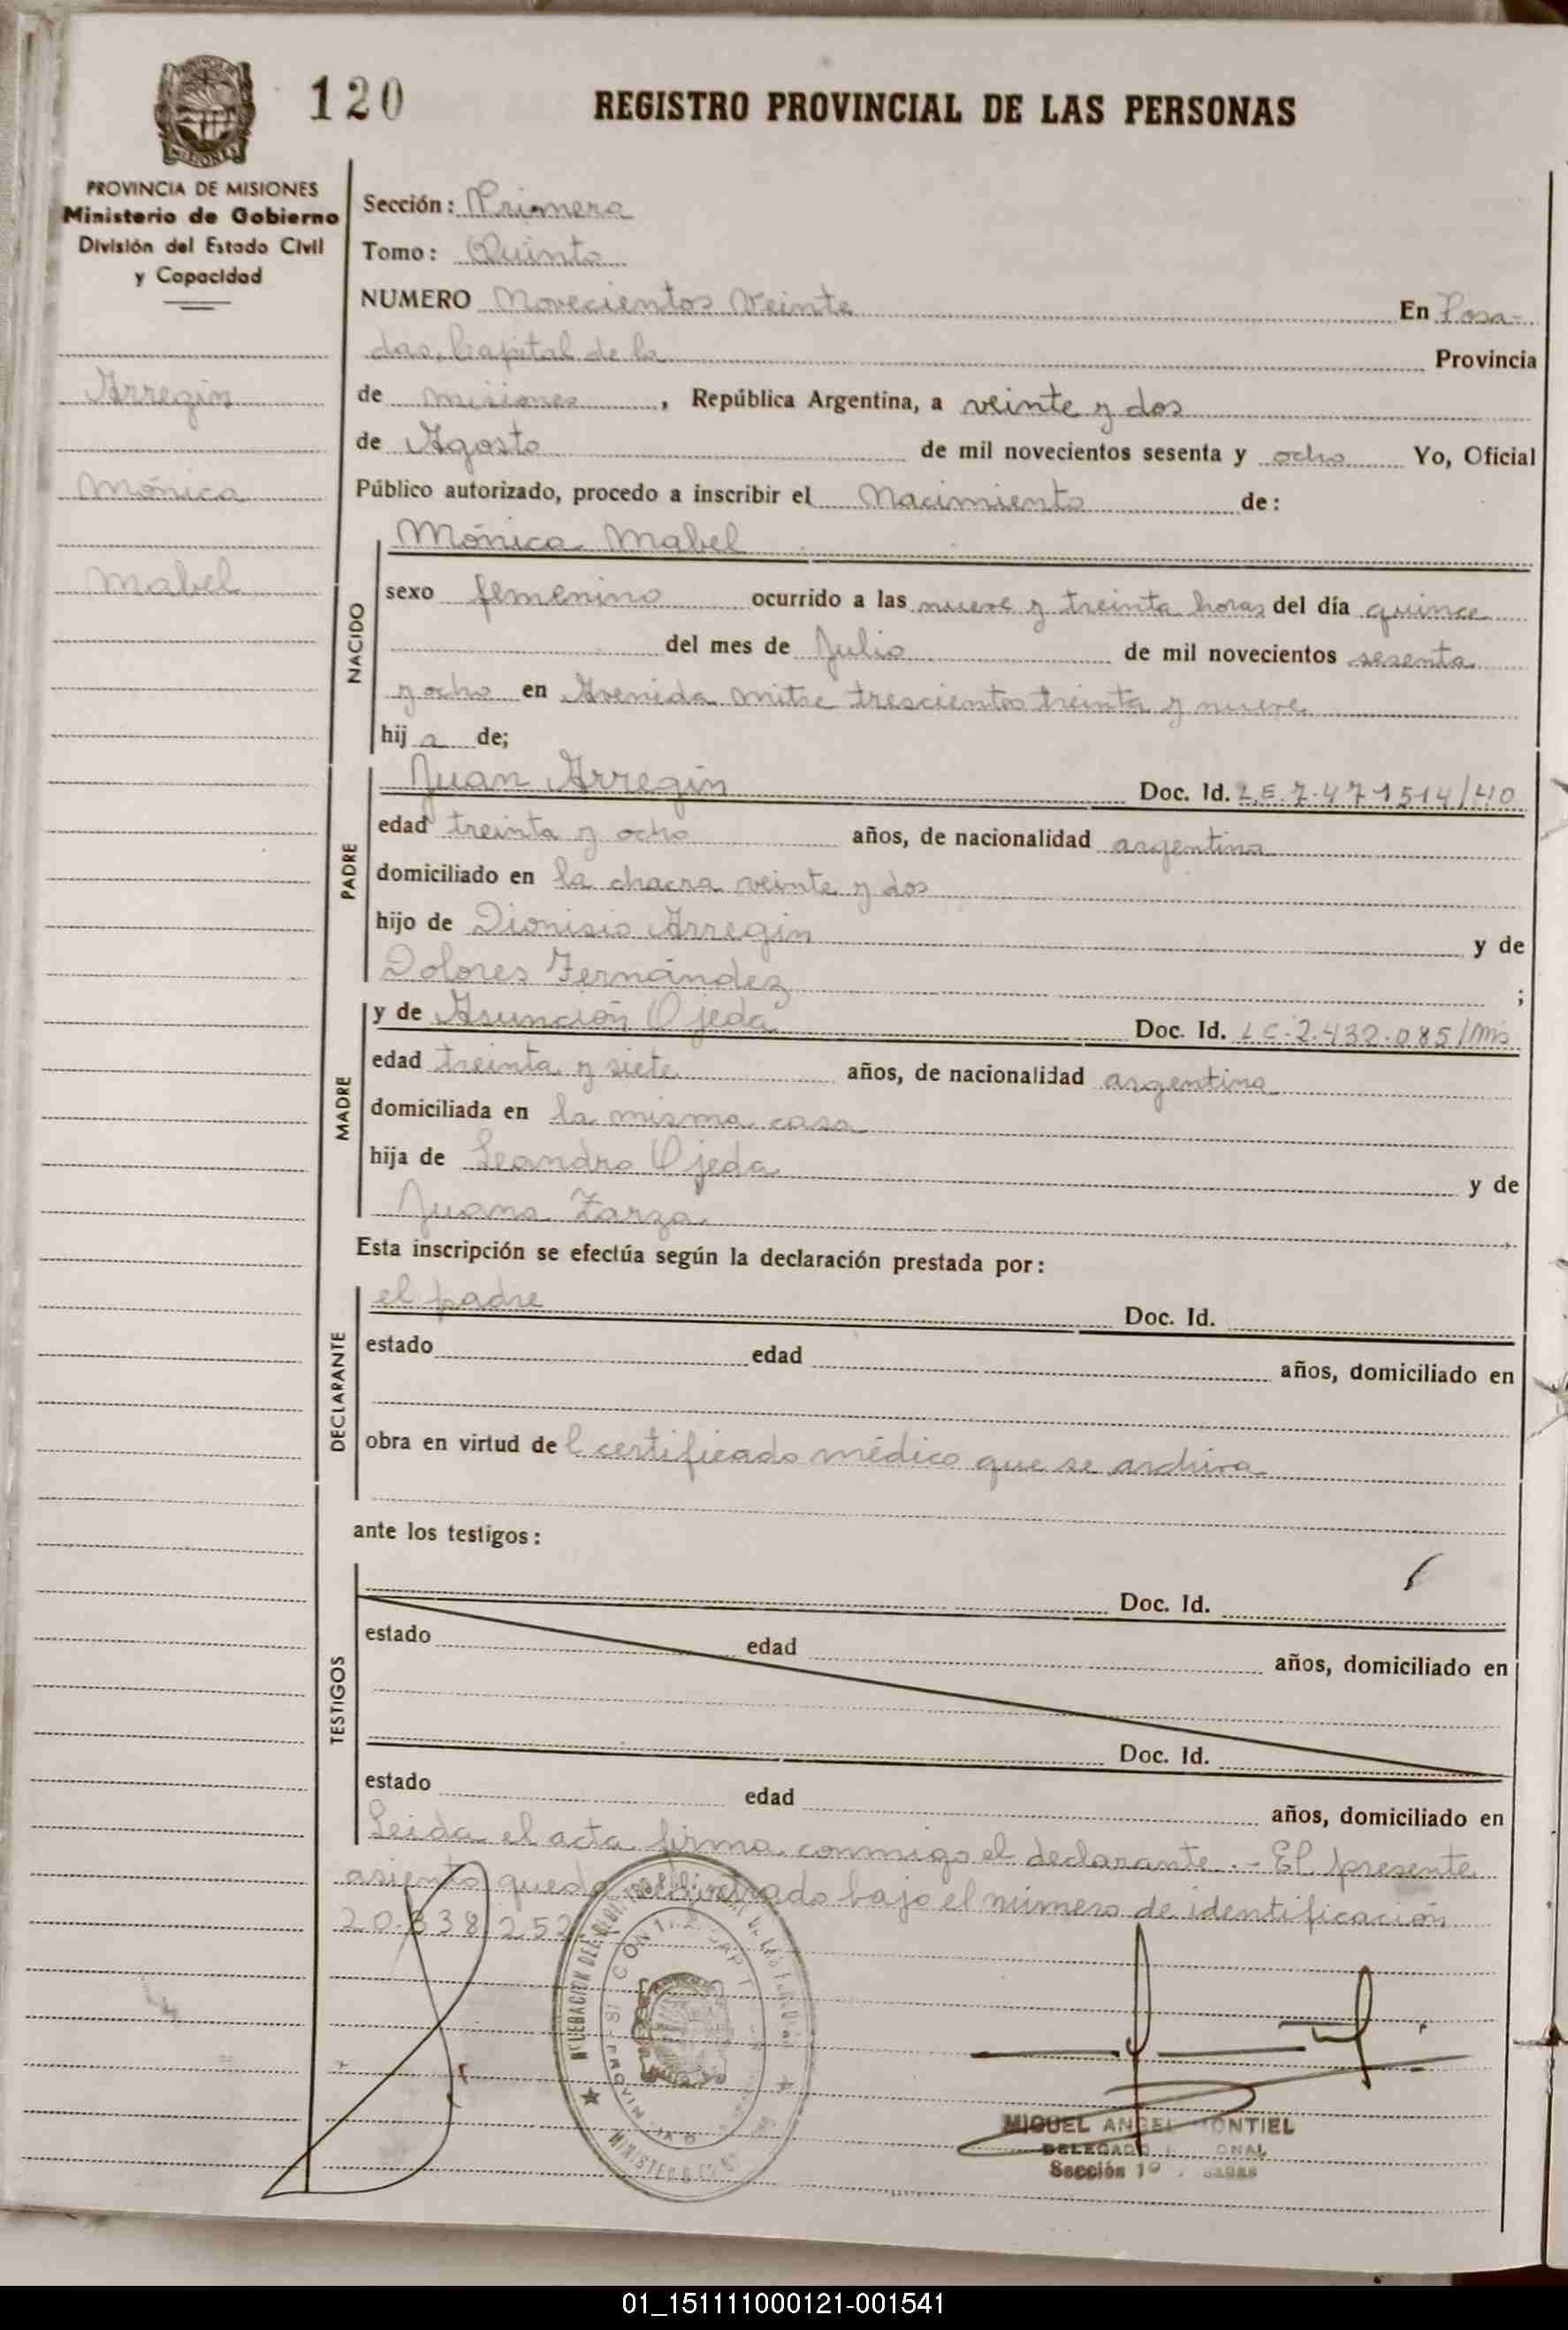 120
REGISTRO PROVINCIAL DE LAS PERSONAS
MISIONES
PROVINCIA DE MISIONES
Ministerio de Gobierno
División del Estado Civil
y Capacidad
Arregin
Mónica
Mabel
Sección: Primera
Tomo: Quinto
NUMERO Novecientos Veinte En Posa-
das, Capital de la Provincia
de Misiones, República Argentina, a veinte y dos
de Agosto de mil novecientos sesenta y ocho Yo, Oficial
Público autorizado, procedo a inscribir el Nacimiento de:
NACIDO
Mónica Mabel
sexo femenino ocurrido a las nueve y treinta horas del día quince
del mes de Julio de mil novecientos sesenta
y ocho en Avenida mitre trescientos treinta y nueve
hij a de;
PADRE
Juan Arregin Doc. Id. L.E. 7.471514/40
edad treinta y ocho años, de nacionalidad argentina
domiciliado en la chacra veinte y dos
hijo de Dionisio Arregin y de
Dolores Fernández ;
MADRE
y de Asunción Ojeda Doc. Id. LC.2.432.085/Mis
edad treinta y siete años, de nacionalidad argentina
domiciliada en la misma casa
hija de Leandro Ojeda y de
Juana Zarza
Esta inscripción se efectúa según la declaración prestada por:
DECLARANTE
el padre Doc. Id.
estado edad años, domiciliado en
obra en virtud de l certificado médico que se archiva
ante los testigos:
TESTIGOS
Doc. Id.
estado edad años, domiciliado en
Doc. Id.
estado edad años, domiciliado en
Leida el acta firma conmigo el declarante.- El presente
asiento queda registrado bajo el número de identificación
20.338.252
MIGUEL ANGEL MONTIEL
DELEGADO
Sección 1º
01_151111000121-001541